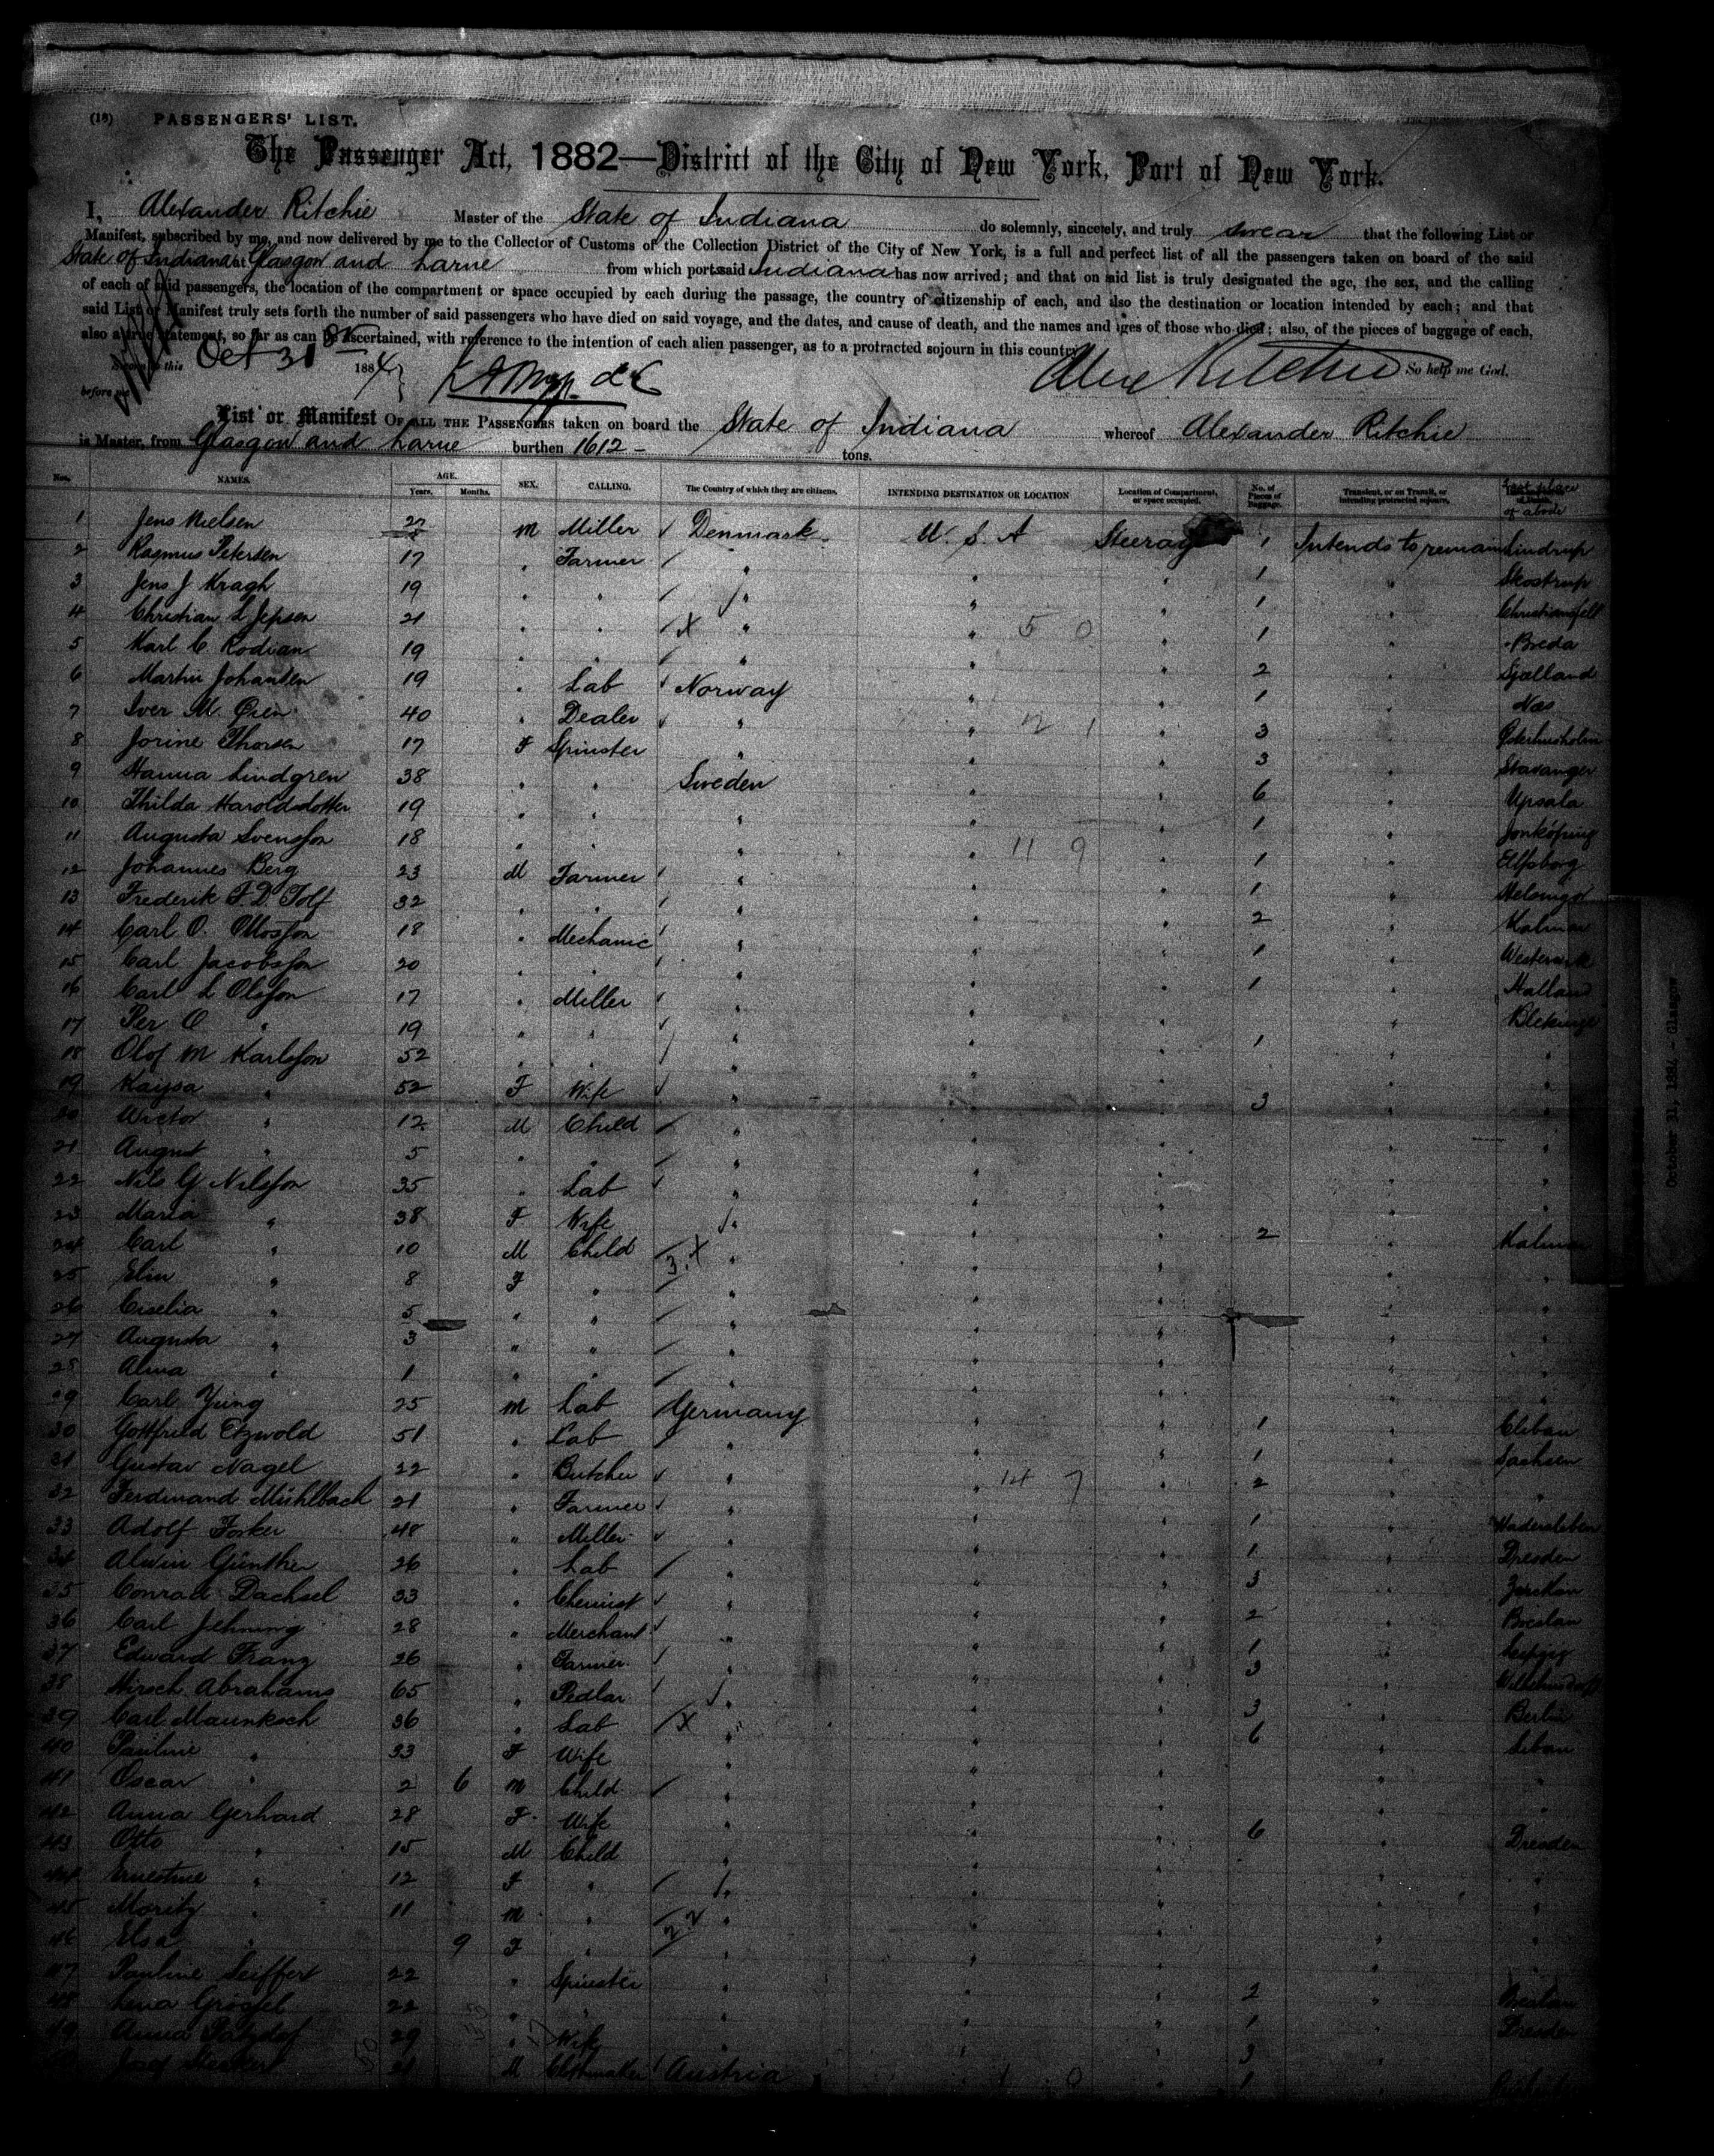 (18) PASSENGERS' LIST.
The Passenger Act, 1882—District of the City of New York, Port of New York.
I, Alexander Ritchie Master of the State of Indiana do solemnly, sincerely, and truly swear that the following List or
Manifest, subscribed by me, and now delivered by me to the Collector of Customs of the Collection District of the City of New York, is a full and perfect list of all the passengers taken on board of the said
State of Indiana at Glasgow and Larne from which port said Indiana has now arrived; and that on said list is truly designated the age, the sex, and the calling
of each of said passengers, the location of the compartment or space occupied by each during the passage, the country of citizenship of each, and also the destination or location intended by each; and that
said List or Manifest truly sets forth the number of said passengers who have died on said voyage, and the dates, and cause of death, and the names and ages of those who died; also, of the pieces of baggage of each,
also a true statement, so far as can be ascertained, with reference to the intention of each alien passenger, as to a protracted sojourn in this country.
Sworn to this Oct 31 1884 Alex Ritchie So help me God.
before me
List or Manifest OF ALL THE PASSENGERS taken on board the State of Indiana whereof Alexander Ritchie
is Master, from Glasgow and Larne burthen 1612 - tons.
Nos. NAMES. AGE. Years. Months. SEX. CALLING. The Country of which they are citizens. INTENDING DESTINATION OR LOCATION Location of Compartment, or space occupied. No. of Pieces of Baggage. Transient, or on Transit, or intending protracted sojourn. Last place of abode
1 Jens Nielsen 27 M Miller Denmark U.S.A Steerage 1 Intends to remain Lindrup
2 Rasmus Petersen 17 " Farmer " " " 1 " Skostrup
3 Jens J Kragh 19 " " " " " 1 " Christiansfelt
4 Christian L Jepsen 21 " " X " " 5 0 " 1 " Breda
5 Karl C. Rodian 19 " " " " " 2 " Sjælland
6 Martin Johansen 19 " Lab Norway " " 1 " Næs
7 Iver M. Øien 40 " Dealer " " 2 1 " 3 "
8 Jorine Thorsen 17 F Spinster " " " 3 " Stavanger
9 Hanna Lindgren 38 " " Sweden " " 6 " Upsala
10 Thilda Haroldsdotter 19 " " " " " 1 " Jonköping
11 Augusta Svensson 18 " " " " 11 9 " 1 " Elfsborg
12 Johannes Berg 23 M Farmer " " " 1 " Helsingor
13 Frederik F. D. Tolf 32 " " " " " 2 " Kalmar
14 Carl O. Ottosson 18 " Mechanic " " " 1 " Westervik
15 Carl Jacobsson 20 " " " " " 1 " Halland
16 Carl L Olsson 17 " Miller " " " " Blekinge
17 Per O " 19 " " " " " 1 " "
18 Olof M Karlsson 52 " " " " " " "
19 Kaysa " 52 F Wife " " " 3 " "
20 Wictor " 12 M Child " " " " "
21 August " 5 " " " " " " "
22 Nils G Nilsson 35 " Lab " " " " "
23 Maria " 38 F Wife " " " 2 " Kalmar
24 Carl " 10 M Child 3 X " " " " "
25 Elin " 8 F " " " " " "
26 Ciselia " 5 " " " " " " "
27 Augusta " 3 " " " " " " "
28 Alma " 1 " " " " " " "
29 Carl Jung 25 M Lab Germany " " 1 "
30 Gottfried Etzwold 51 " Lab " " " 1 " Sachsen
31 Gustav Nagel 22 " Butcher " " 14 7 " 2 " "
32 Ferdinand Mühlbach 21 " Farmer " " " 1 " Hadersleben
33 Adolf Forker 48 " Miller " " " 1 " Dresden
34 Alwin Günther 26 " Lab " " " 3 "
35 Conrad Dachsel 33 " Chemist " " " 2 " Breslau
36 Carl Jehning 28 " Merchant " " " 1 " Leipzig
37 Edward Franz 26 " Farmer " " " 3 " Wilhelmsdorf
38 Hirsch Abrahams 65 " Pedlar " " " 3 " Berlin
39 Carl Maunksch 36 " Lab X " " " 6 "
40 Pauline " 33 F Wife " " " " "
41 Oscar " 2 6 M Child " " " " "
42 Anna Gerhard 28 F Wife " " " 6 " Dresden
43 Otto " 15 M Child " " " " "
44 Ernestine " 12 F " " " " " "
45 Moritz " 11 M " " " " " "
46 Elsa " 9 F " " " " " "
47 Pauline Seiffert 22 " Spinster " " " 2 " Breslau
48 Lena 22 " " " " " 1 " Dresden
49 Anna 29 " Wife " " " 3 "
Josef 21 M Clothmaker Austria " 1 0 " 1 "
October 31, 1884 - Glasgow